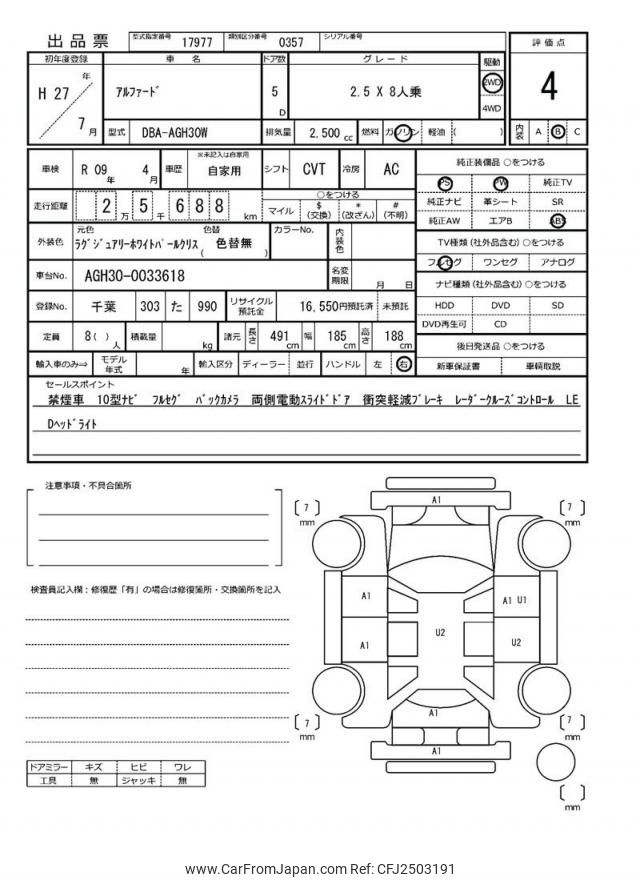 出品票 型式指定番号 17977 類別区分番号 0357 シリアル番号
初年度登録 車名 ドア数 グレード 駆動 評価点
H 27 年 7 月 アルファード 5 D 2.5 X 8人乗 2WD 4WD 4
型式 DBA-AGH30W 排気量 2,500 cc 燃料 ガソリン 軽油 ( ) 内装 A B C
車検 R 09 年 4 月 車歴 ※未記入は自家用 自家用 シフト CVT 冷房 AC
純正装備品 ○をつける
PS PW 純正TV
純正ナビ 革シート SR
純正AW エアB ABS
走行距離 2 万 5 千 6 8 8 km ○をつける
マイル $ (交換) * (改ざん) # (不明)
TV種類 (社外品含む) ○をつける
フルセグ ワンセグ アナログ
外装色 元色 ラグジュアリーホワイトパールクリス 色替 ( 色替無 ) カラーNo. 内装色
ナビ種類 (社外品含む) ○をつける
HDD DVD SD
DVD再生可 CD
車台No. AGH30-0033618 名変期限 月 日
登録No. 千葉 303 た 990 リサイクル預託金 16,550円預託済 未預託
定員 8 ( ) 人 積載量 kg 諸元 長さ 491 cm 幅 185 cm 高さ 188 cm
後日発送品 ○をつける
新車保証書 車輌取説
輸入車のみ⇒ モデル年式 年 輸入区分 ディーラー 並行 ハンドル 左 右
セールスポイント
禁煙車 10型ナビ フルセグ バックカメラ 両側電動スライドドア 衝突軽減ブレーキ レーダークルーズコントロール LE
Dヘッドライト
注意事項・不具合箇所
検査員記入欄:修復歴「有」の場合は修復箇所・交換箇所を記入
A1
7 mm
7 mm
A1
A1 U1
A1
U2
U2
A1
A1
7 mm
7 mm
mm
ドアミラー キズ ヒビ ワレ
工具 無 ジャッキ 無
www.CarFromJapan.com Ref: CFJ2503191